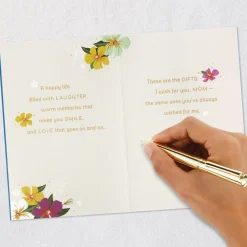 A happy life
filled with LAUGHTER,
warm memories that
make you SMILE,
and LOVE that goes on and on...
These are the GIFTS
I wish for you, MOM –
the same ones you've always
wished for me.